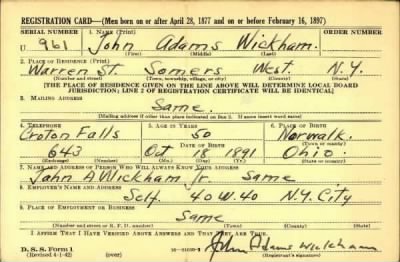 REGISTRATION CARD—(Men born on or after April 28, 1877 and on or before February 16, 1897)
SERIAL NUMBER 1. NAME (Print) ORDER NUMBER
U 961 John Adams Wickham.
(First) (Middle) (Last)
2. PLACE OF RESIDENCE (Print)
Warren St. Somers West. N.Y.
(Number and street) (Town, township, village, or city) (County) (State)
[THE PLACE OF RESIDENCE GIVEN ON THE LINE ABOVE WILL DETERMINE LOCAL BOARD
JURISDICTION; LINE 2 OF REGISTRATION CERTIFICATE WILL BE IDENTICAL]
3. MAILING ADDRESS
Same.
[Mailing address if other than place indicated on line 2. If same insert word same]
4. TELEPHONE 5. AGE IN YEARS 6. PLACE OF BIRTH
Croton Falls 50 Norwalk.
DATE OF BIRTH (Town or county)
643 Oct 18 1891 Ohio.
(Exchange) (Number) (Mo.) (Day) (Yr.) (State or country)
7. NAME AND ADDRESS OF PERSON WHO WILL ALWAYS KNOW YOUR ADDRESS
John A Wickham Jr. Same
8. EMPLOYER'S NAME AND ADDRESS
Self. 40 W. 40 N.Y. City
9. PLACE OF EMPLOYMENT OR BUSINESS
Same
(Number and street or R. F. D. number) (Town) (County) (State)
I AFFIRM THAT I HAVE VERIFIED ABOVE ANSWERS AND THAT THEY ARE TRUE.
D. S. S. Form 1 John Adams Wickham
(Revised 4-1-42) (over) (Registrant's signature)